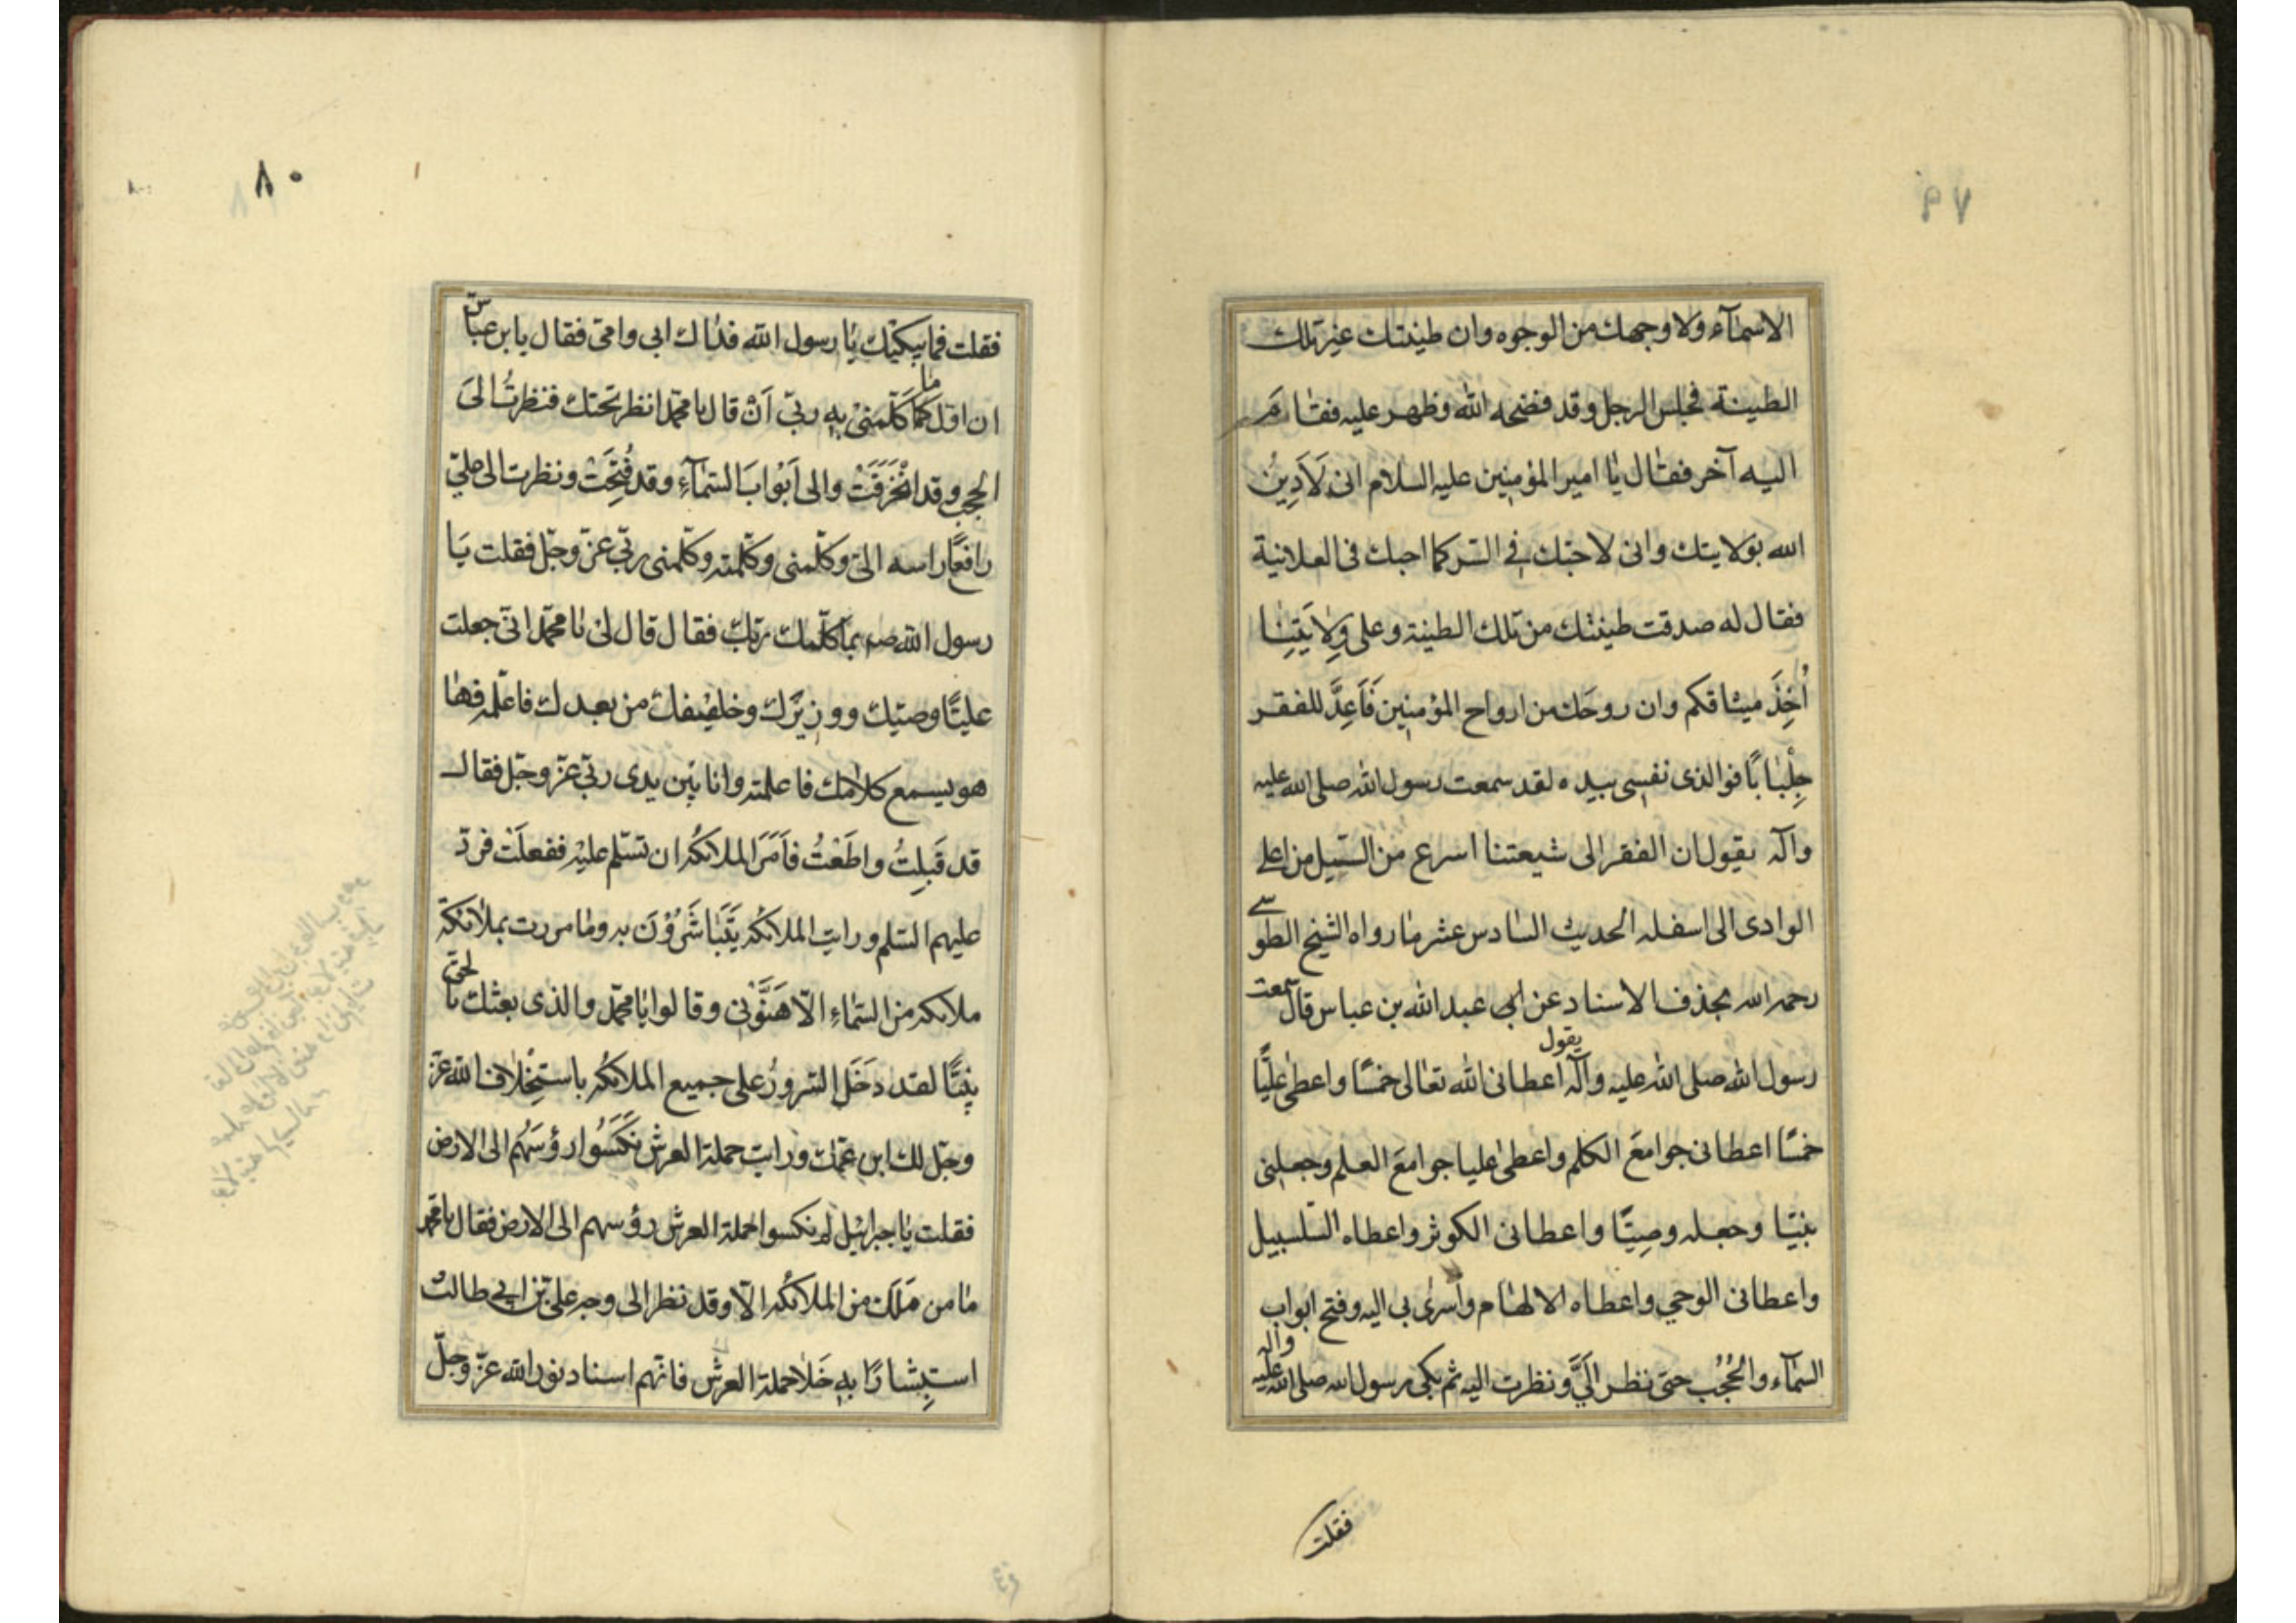 الاسمآء ولا وجهك من الوجوه وان طينتك غير تلك
الطينة فجلس الرجل وقد فضحه الله وظهر عليه فقام
اليه آخر فقال يا امير المؤمنين عليه السلام انى لَاَدِينُ
الله بولايتك وانى لاحبّك فى السّر كما احبك فى العلانية
فقال له صدقت طينتك من تلك الطينة وعلى وِلايَتِنا
اُخِذَ ميثاقكم وان روحَك من ارواح المؤمنين فَاَعِدَّ للفقر
جِلْبابًا فوالذى نفسى بيده لقد سمعت رسول الله صلى الله عليه
وآله يقول ان الفقر الى شيعتنا اسرع من السّيل من اعلى
الوادى الى اسفله الحديث السادس عشر ما رواه الشيخ الطوسے
رحمه الله بحذف الاسناد عن ابى عبد الله بن عباس قال سمعت
رسول الله صلى الله عليه وآله يقول اعطانى الله تعالى خمسًا واعطى عليًّا
خمسًا اعطانى جوامعَ الكلم واعطى عليا جوامعَ العلم وجعلنى
نبيّا وجعله وصِيًّا واعطانى الكوثر واعطاه السّلسبيل
واعطانى الوحي واعطاه الالهام واَسرىٰ بى اليه وفتح ابواب
السّمآء والحُجُب حتى نظر اِلَيَّ ونظرت اليه ثم بكى رسول الله صلى الله عليه وآله
فقلت
٨٠
فقلت فما يبكيك يا رسول الله فداك ابى وامّى فقال يابن عباس
ان اوّل ما كلّمنى بِهِ ربّى اَنْ قال يا محمّد انظر تحتك فنظرتُ الىَ
الحجب وقد انْخَرَقَتْ والى اَبْوابَ السّمآءِ وقد فُتِحَتْ ونظرت الى عليّ
رافعًا راسه الىّ وكلّمنى وكلّمته وكلّمنى ربّى عزّ وجلّ فقلت يَا
رسول الله صم بما كلّمك ربّك فقال قال لى يا محمّد انّى جعلت
عليًّا وصيّك ووزِيرَك وخليفتك من بعدك فاعلمه فها
هو يسمع كلامك فاعلمته وانا بين يدى ربّى عزّ وجلّ فقال
قد قَبِلتُ واطَعْتُ فاَمَرَ الملائكةَ ان تسَلّم عليْه ففعلَتْ فردّ
عليهم السّلم ورايت الملائكة يَتَباشَرُوْنَ به وما مررت بملائكة
ملائكه من السّماءِ الّا هَنَّوُنى وقالوا يا محمّد والذى بعثك بالحق
نبيًّا لقد دَخَلَ السّرورُ على جميع الملائكة باستِخْلاف الله عزّ
وجلّ لك ابن عمّك ورايت حملة العرش نَكَسُوا رؤسَهُم الى الارض
فقلت يا جبرائيل لِم نكسوا حملة العرش رؤسهم الى الارض فقال يا محمّد
ما من مَلَك من الملائكة الّا وقد نظر الى وجه علىّ بن ابى طالب
استِبشارًا بِهِ خَلا حملة العرش فانّهم اسناد نور الله عزّ وجلّ